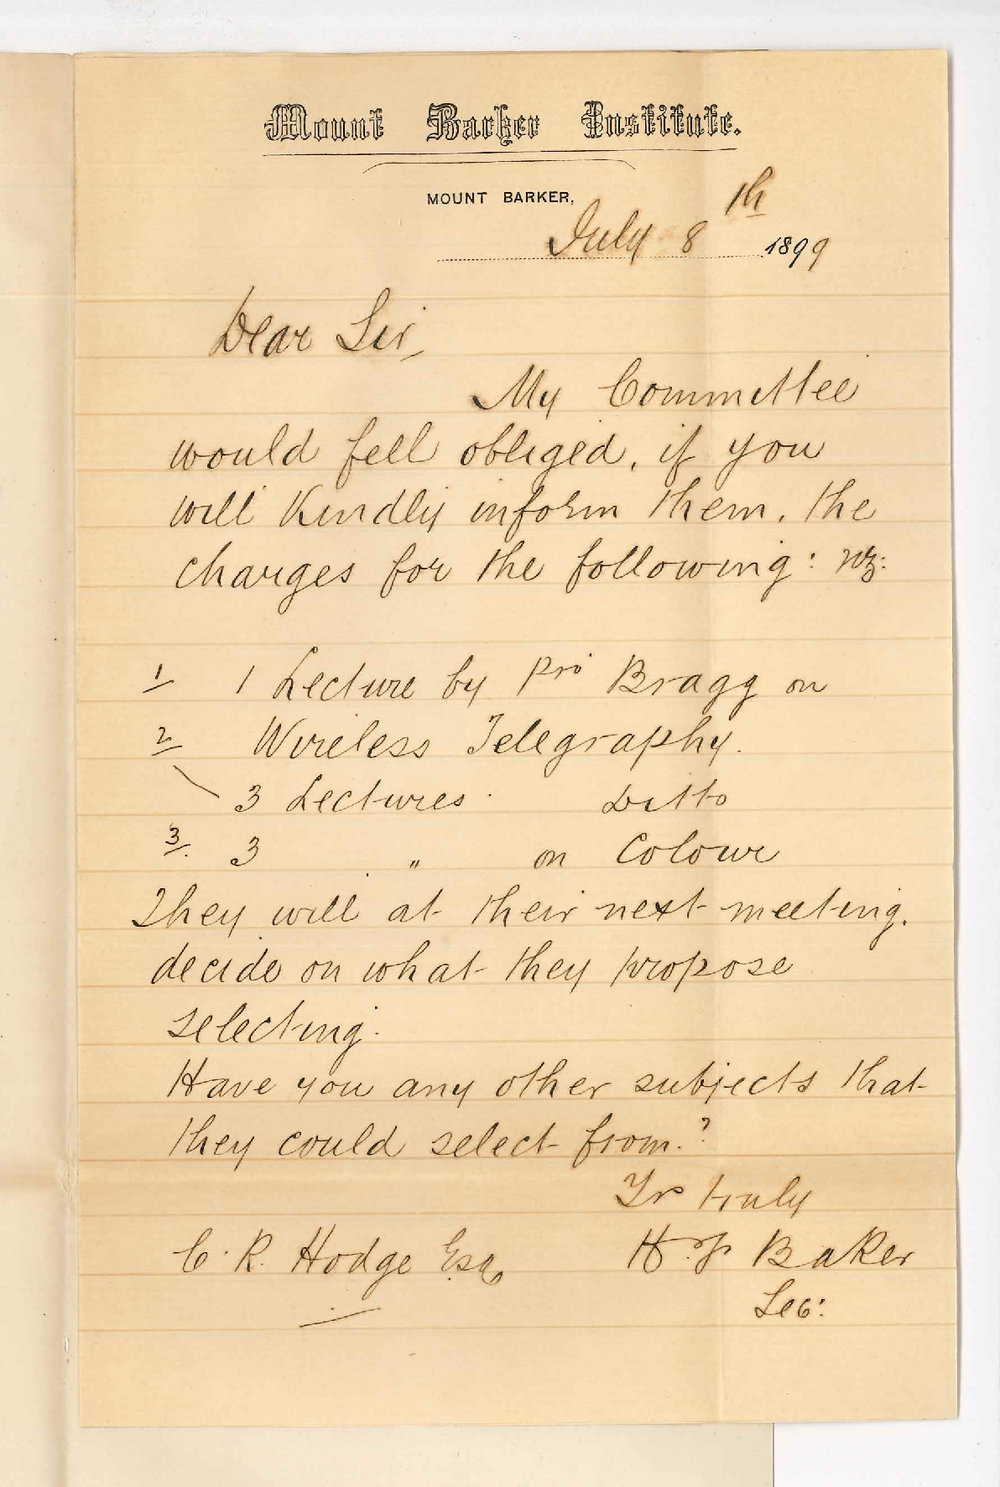 Mount Barker Institute.
MOUNT BARKER,
July 8th 1899
Dear Sir,
My Committee
would fell obliged, if you
will Kindly inform them, the
charges for the following: viz:
1 1 Lecture by Pro Bragg on
2 Wireless Telegraphy.
3 Lectures Ditto
3. 3 " on Colour
They will at their next meeting.
decide on what they propose
selecting.
Have you any other subjects that
they could select from.?
Yr truly
C. R. Hodge Esq H. Baker
Sec: